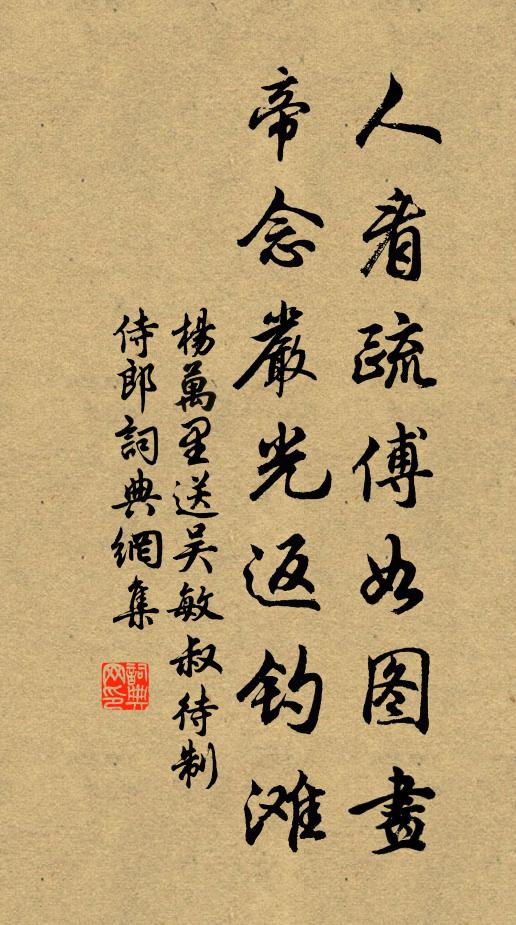 人看疏傅如图畫
帝念嚴光返钓滩
楊萬里送吴敏叔待制
侍郎詞典網集
詞典网印